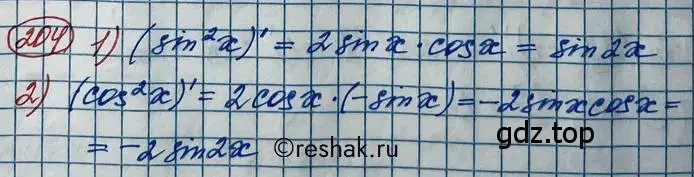 204 1) (sin²x)' = 2sinx·cosx = sin2x
2) (cos²x)' = 2cosx·(-sinx) = -2sinxcosx =
= -2sin2x ©reshak.ru gdz.top